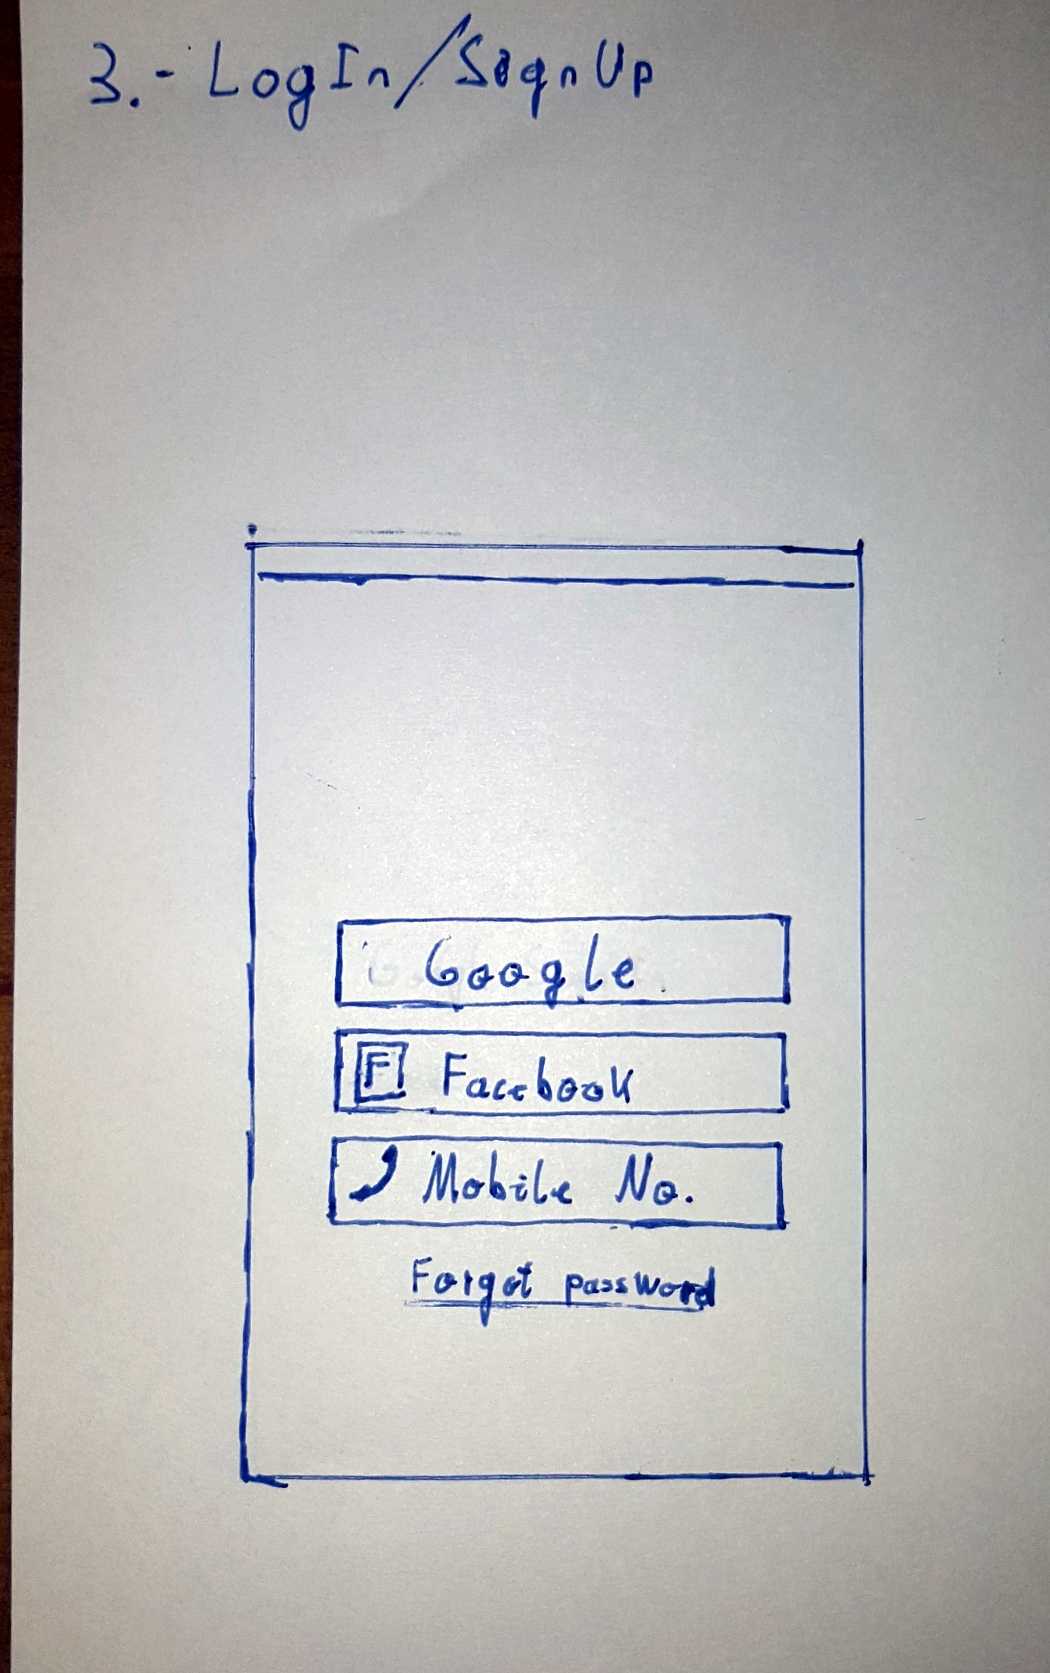 3.- LogIn/SignUp
Google
F Facebook
Mobile No.
Forgot password